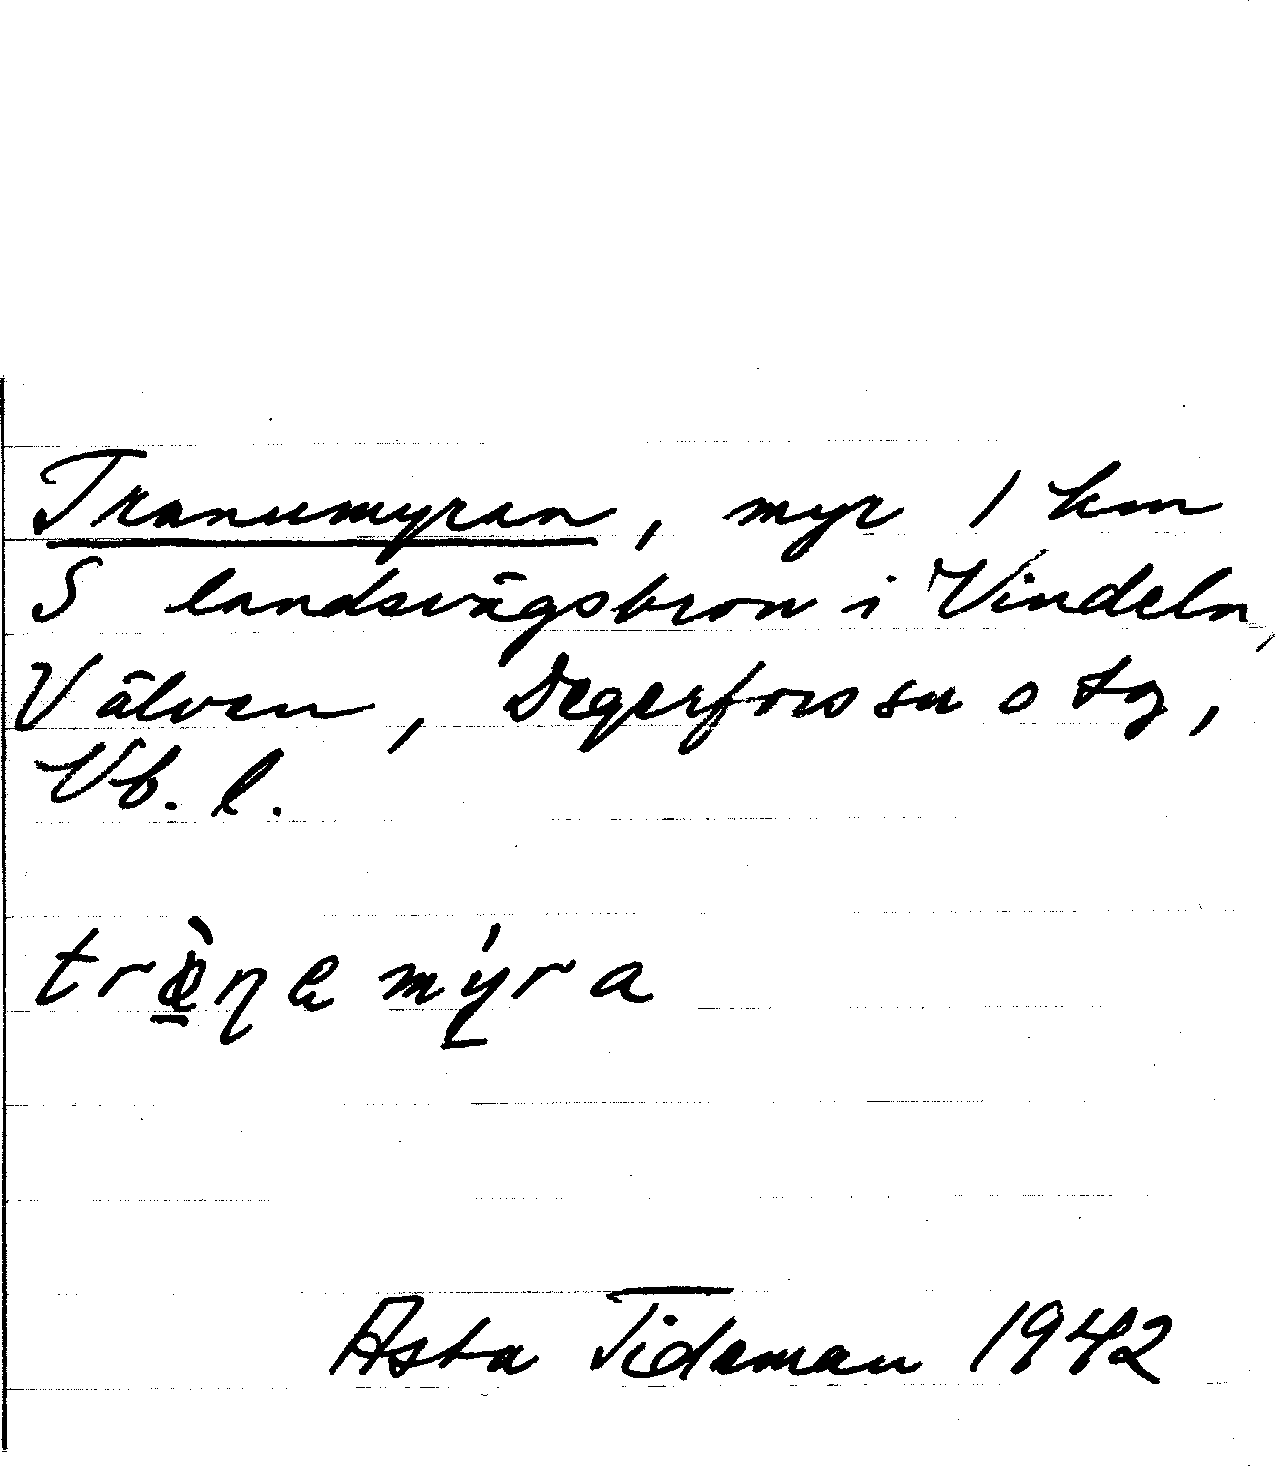 Tranumyran, myr 1 km
S landsvägsbron i Vindeln,
V älven, Degerfors sn o tg,
Vb. l.
mýra
Asta Tideman 1942